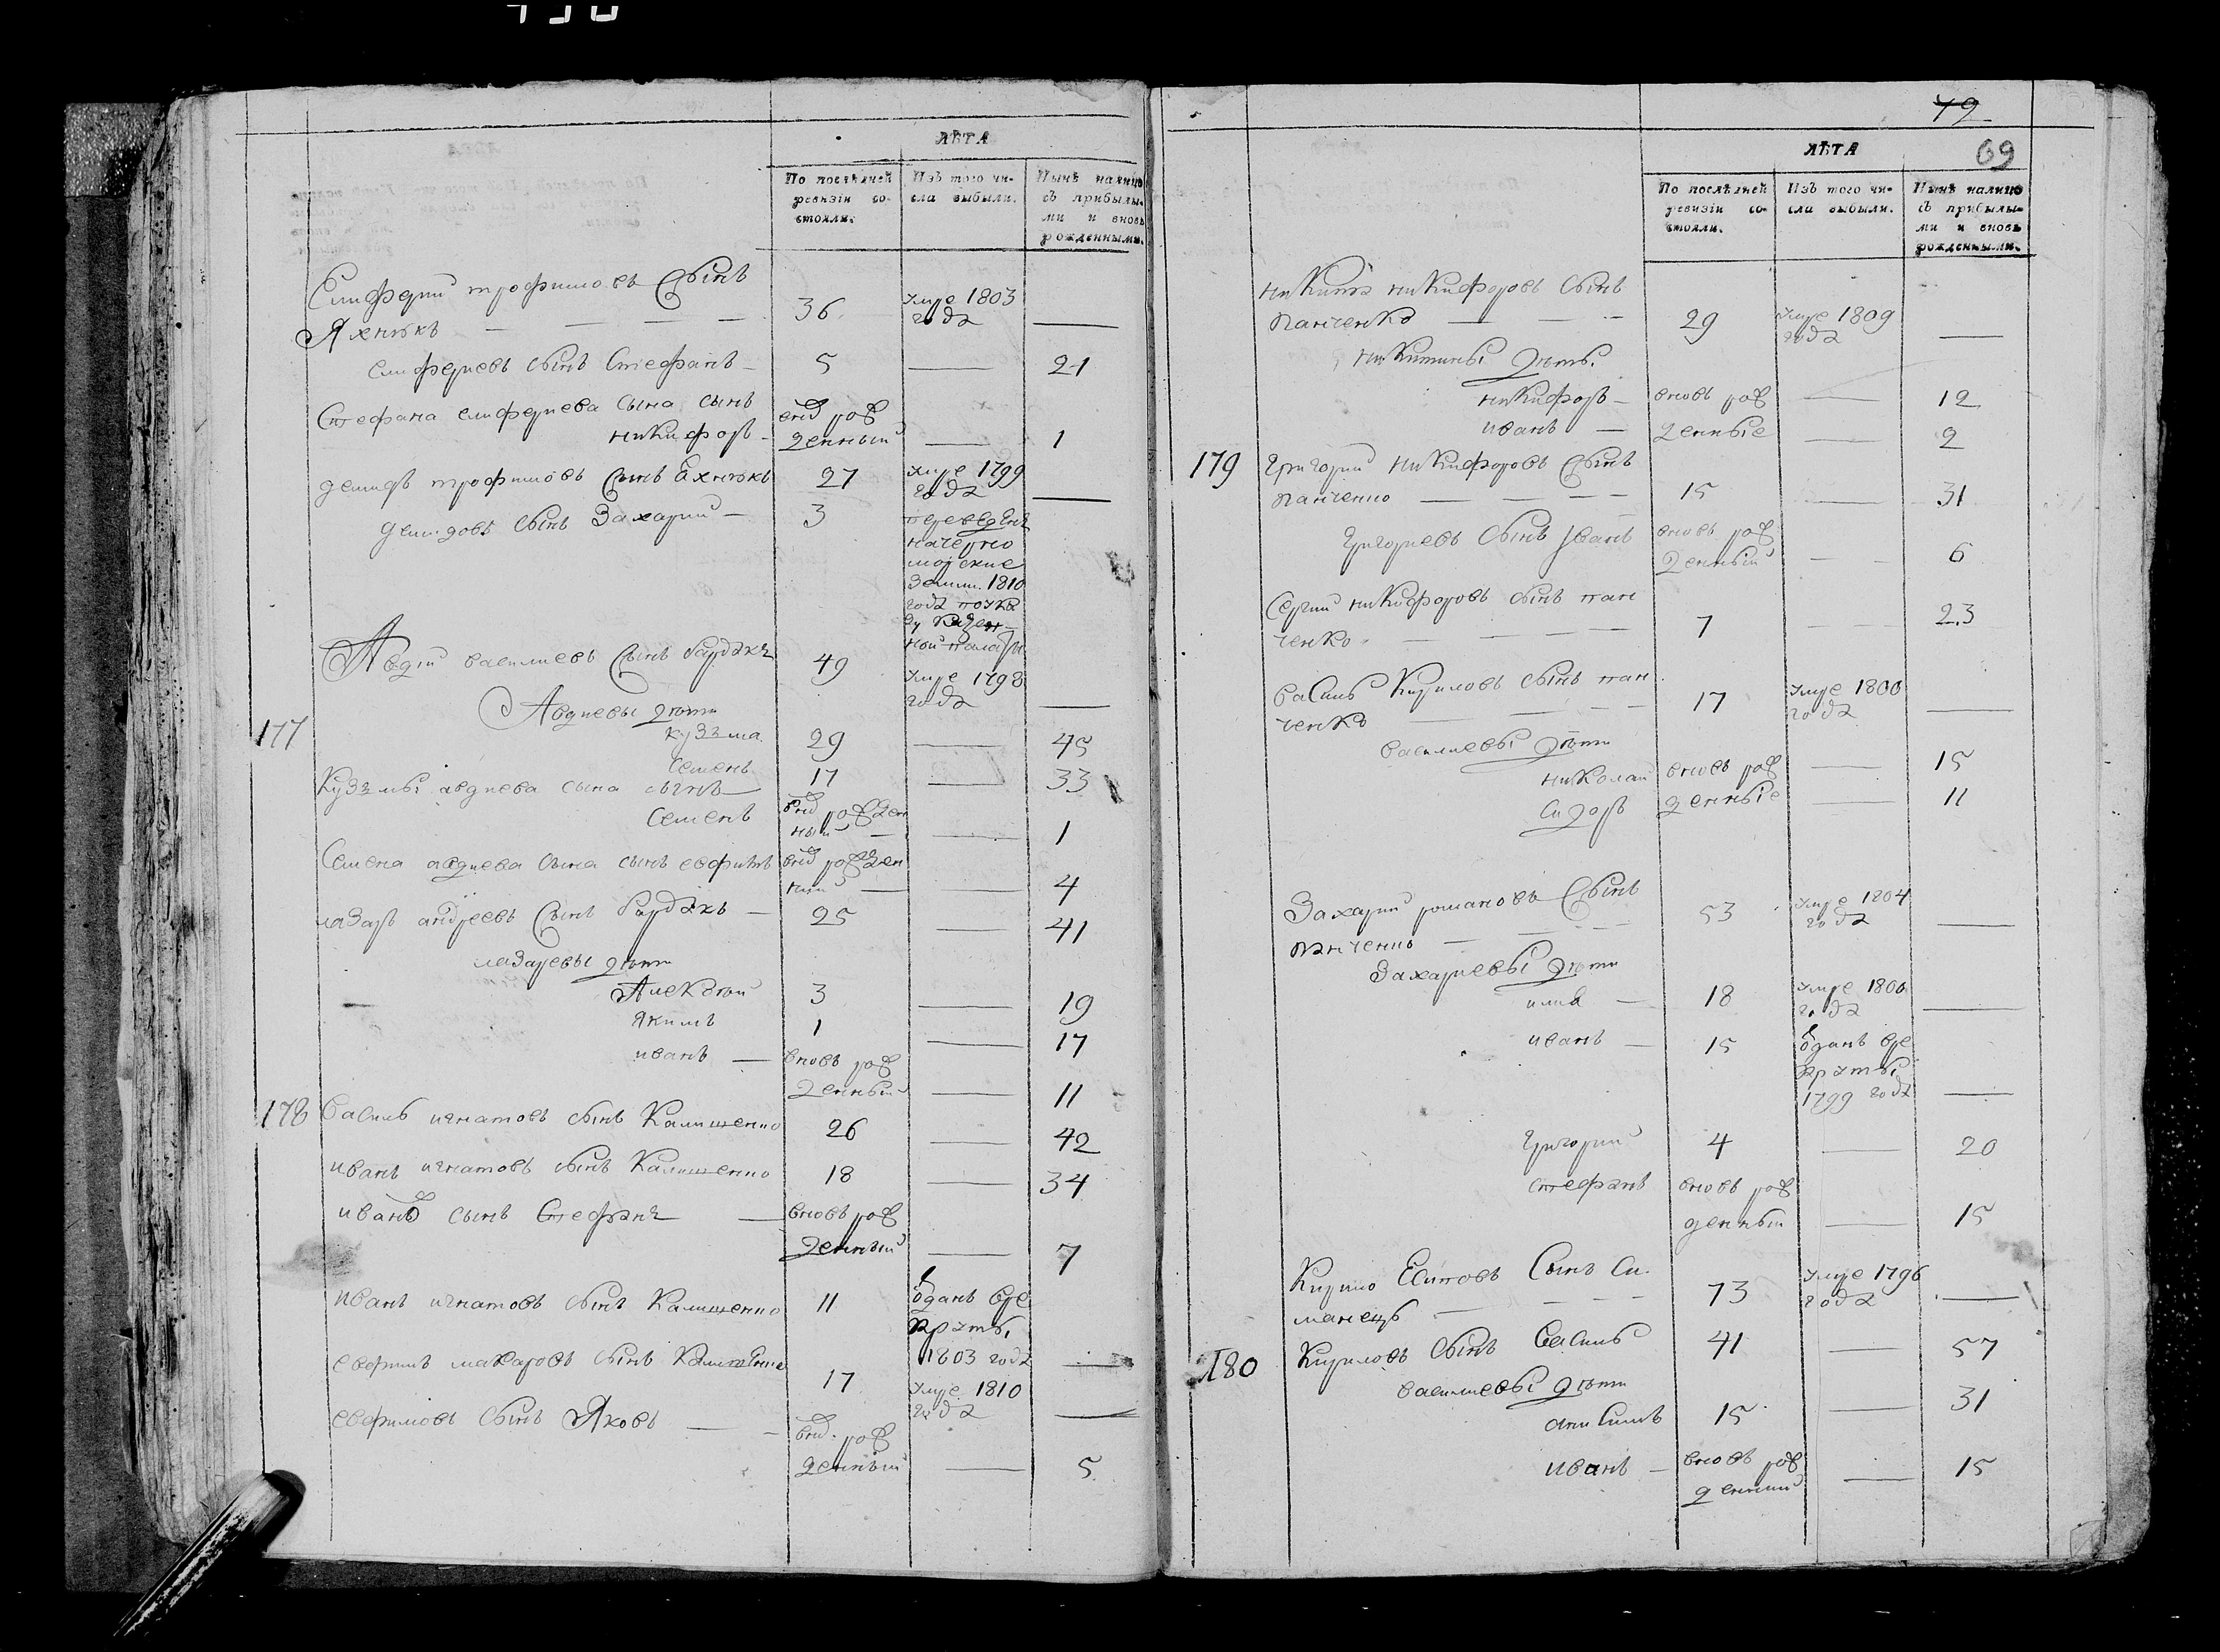 ЛѢТА
По послѣдней
ревизіи со-
стояли.
Изъ того чи-
сла выбыли.
Нынѣ налицо
съ прибылы-
ми и вновь
рожденными.
Елиферий трофимовъ Сынъ
Яхнѣкъ
36
умре 1803
года
елифериевъ сынъ Стефанъ
5
21
Стефана елифериева сына сынъ
никифоръ
внов рож
денный
1
демидъ трофимовъ Сынъ Ехнѣкъ
27
умре 1799
года
демидовъ сынъ Захарий
3
переведенъ
начерно
морские
земли 1810
года поука
зу Казен
ной палаты
Авдій василиевъ Сынъ
49
умре 1798
года
Авдиевы дѣти
177
кузма
29
45
Семенъ
17
33
Кузмы авдиева сына сынъ
Семенъ
внов рожден
ный
1
Семена авдиева сына сынъ евфимъ
внов рожден
ный
4
лазаръ андреевъ Сынъ
25
41
лазаревы дѣти
Алексѣй
3
19
Якимъ
1
17
иванъ
вновь рож
денный
11
178
Василь игнатовъ сынъ Калишенко
26
42
иванъ игнатовъ сынъ Калишенко
18
34
иванов сынъ Стефанъ
вновь рож
денный
7
иванъ игнатовъ сынъ Калишенко
11
Отданъ вре
круты
1803 года
евфимъ макаровъ сынъ Калишенко
17
умре 1810
года
евфимовъ сынъ Яковъ
внов рож
денный
5
72
69
ЛѢТА
По послѣдней
ревизіи со-
стояли.
Изъ того чи-
сла выбыли.
Нынѣ налицо
съ прибылы-
ми и вновь
рожденными.
никита никифоровъ сынъ
панченко
29
умре 1809
года
никитины дѣти
никифоръ
вновь рож
12
иванъ
денные
2
179
григорий никифоровъ Сынъ
панченко
15
31
григориевъ сынъ Іванъ
вновь рож
денный
6
Сергий никифоровъ сынъ пан
ченко
7
23
василь Кириловъ сынъ пан
ченко
17
умре 1800
года
василиевы дѣти
николай
вновь рож
15
Сидоръ
денные
11
Захарий романовъ Сынъ
панченко
53
умре 1804
года
Захариевы дѣти
илия
18
умре 1800
года
иванъ
15
Отданъ вре
круты
1799 года
григорий
4
20
стефанъ
вновь рож
денный
15
Кирило Есиповъ Сынъ Си
манецъ
73
умре 1796
года
180
Кириловъ сынъ Василь
41
57
василиевы дѣти
анисимъ
15
31
иванъ
вновь рож
денный
15